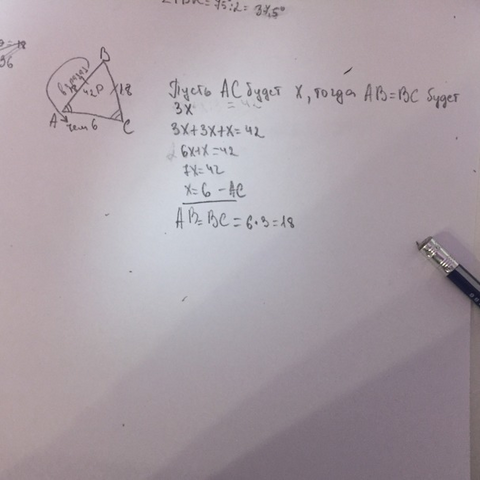 = 75:2 = 37,5°
36
B
в 3 раза
42P
18
A
чем 6
C
Пусть AC будет x, тогда AB=BC будет
3x = 42
3x+3x+x=42
6x+x=42
7x=42
x=6 - AC
AB=BC=6·3=18